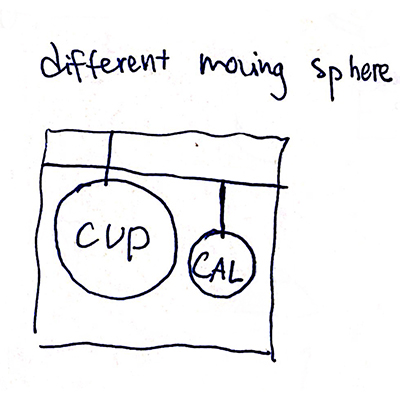 different moving sphere
CUP
CAL